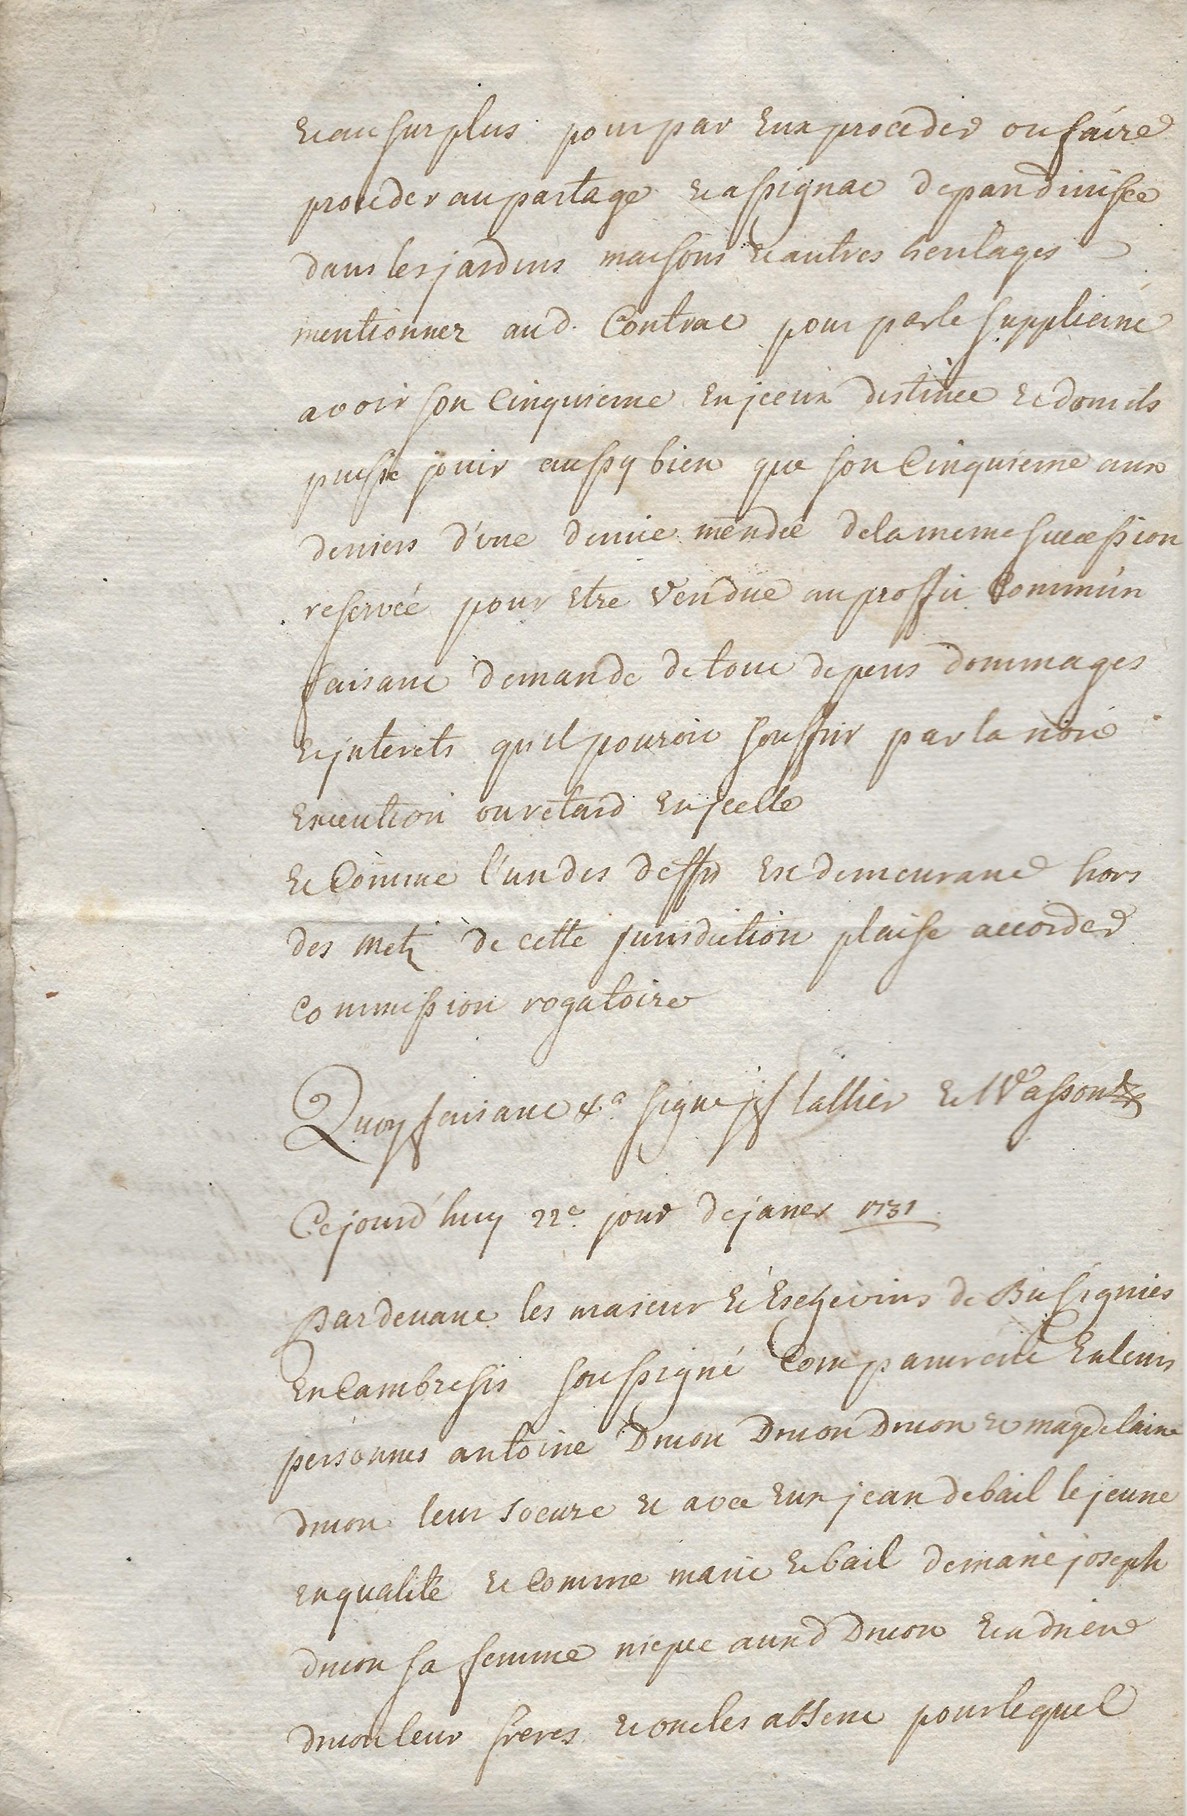 et au surplus pour par eux proceder ou faire
proceder au partage et assignat de pand divisee
dans les jardins maisons et autres heritages
mentionnez aud. Contrat pour par le suppliant
avoir son Cinquieme en jceux distinct et dont ils
puisse jouir aussy bien que son Cinquieme aux
deniers d'une demie mendée de la meme succession
reservée pour etre vendue au proffit Commun
faisant demande de tout depens dommages
et jnterets qu'il pouroit souffrir par la non
execution ou retard en jcelle
et Comme l'un des deffrs est demeurant hors
des metz de cette jurisdiction plaise accorder
Commission rogatoire
Quoy faisant &a signé lallier et Wasson
Cejourd'huy 22e. jour de janer 1731
pardevant les maieur et Eschevins de Busignies
en Cambresis soussigné Comparurent en leurs
personnes antoine Druon Druon Druon et magdelaine
druon leur soeure et avec eux jean debail le jeune
en qualité et Comme marit et bail de marie joseph
druon sa femme niepce auxd Druon et adrien
druon leur freres et oncles absent pour lequel